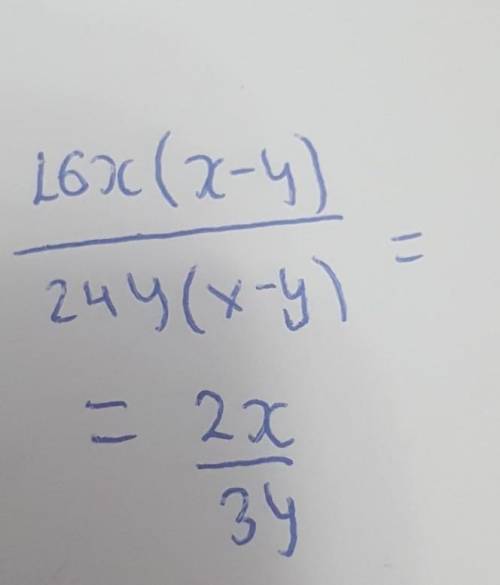 16x(x-y)
24y(x-y) =
= 2x
3y